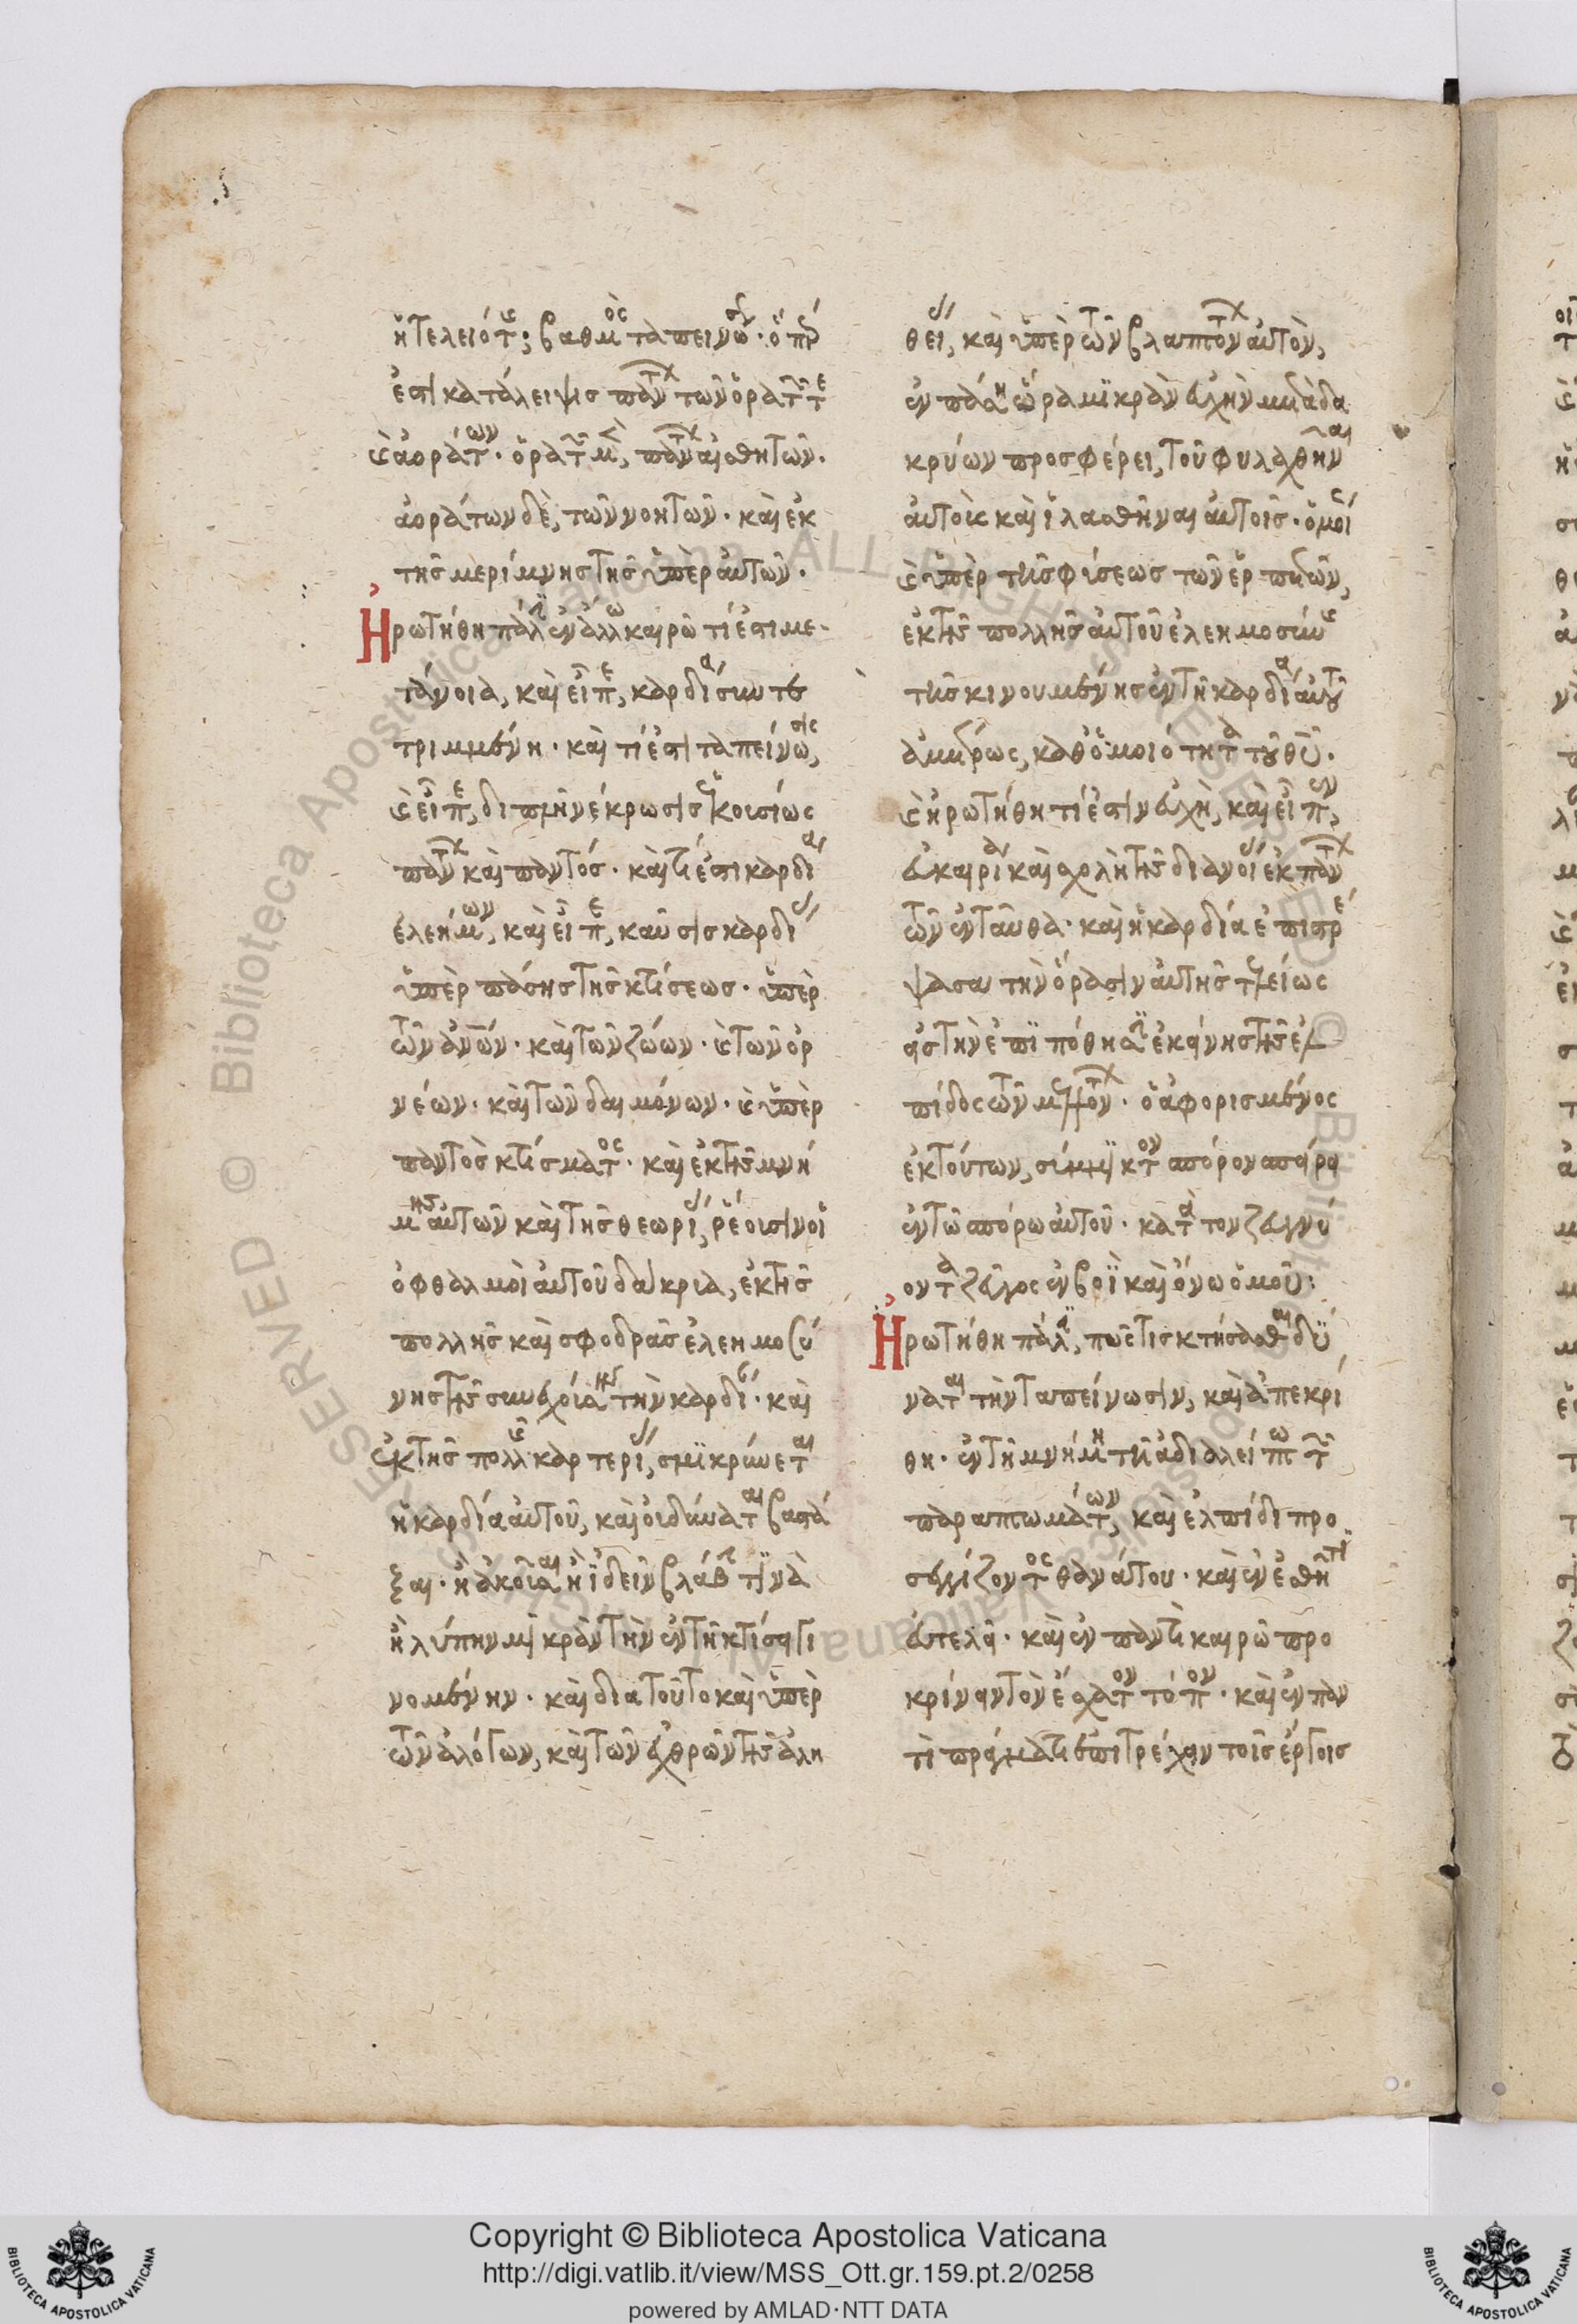 ἡ τελειότης; βαθμὸς ταπεινώσεως· ὅπερ
ἐστὶ κατάλειψις πάντων τῶν ὁρατῶν τε
καὶ ἀοράτων· ὁρατῶν μὲν, πάντων αἰσθητῶν·
ἀοράτων δὲ, τῶν νοητῶν· καὶ ἐκ
τῆς μερίμνης τῆς ὑπὲρ αὐτῶν·
Ἠρωτήθη πάλιν ἐν ἄλλω καιρῶ τί ἐστι με
τάνοια, καὶ εἶπε, καρδία συντε
τριμμένη· καὶ τί ἐστι ταπείνωσις,
καὶ εἶπε, διπλῆ νέκρωσις ἑκουσίως
πάντων καὶ παντός· καὶ τί ἐστι καρδία
ἐλεήμων, καὶ εἶπε, καῦσις καρδίας
ὑπὲρ πάσης τῆς κτίσεως· ὑπὲρ
τῶν ἀνων· καὶ τῶν ζώων· καὶ τῶν ὀρ
νέων· καὶ τῶν δαιμόνων· καὶ ὑπὲρ
παντὸς κτίσματος· καὶ ἐκ τῆς μνή
μης αὐτῶν καὶ τῆς θεωρίας, ῥέουσιν οἱ
ὀφθαλμοὶ αὐτοῦ δάκρυα, ἐκ τῆς
πολλῆς καὶ σφοδρᾶς ἐλεημοσύ
νης τῆς συνεχούσης τὴν καρδίαν· καὶ
ἐκ τῆς πολλῆς καρτερίας, σμικρύνεται
ἡ καρδία αὐτοῦ, καὶ οὐ δύναται βαστά
ξαι· ἢ ἀκοῦσαι ἢ ἰδεῖν βλάβην τινὰ
ἢ λύπην μικρὰν τὴν ἐν τῆ κτίσει γι
νομένην· καὶ διατοῦτο καὶ ὑπὲρ
τῶν ἀλόγων, καὶ τῶν ἐχθρῶν τῆς ἀλη
θείας, καὶ ὑπὲρ τῶν βλαπτόντων αὐτὸν,
ἐν πάση ὥρα μικρὰν εὐχὴν μετὰ δα
κρύων προσφέρει, τοῦ φυλαχθῆναι
αὐτοὺς καὶ ἱλασθῆναι αὐτοῖς· ὁμοί
καὶ ὑπὲρ τῆς φύσεως τῶν ἑρπετῶν,
ἐκ τῆς πολλῆς αὐτοῦ ἐλεημοσύνης
τῆς κινουμένης ἐν τῆ καρδία αὐτοῦ
ἀμέτρως, καθ' ὁμοιότητα τοῦ θυ·
καὶ ἠρωτήθη τί ἐστιν εὐχὴ, καὶ εἶπεν,
εὐκαιρία καὶ σχολὴ τῆς διανοίας ἐκ πάντων
τῶν ἐνταῦθα· καὶ ἡ καρδία ἐπιστρέ
ψασα τὴν ὅρασιν αὐτῆς τελείως
εἰς τὴν ἐπιπόθησιν ἐκείνης τῆς ἐλ
πίδος τῶν μελλόντων· ὁ ἀφορισμένος
ἐκ τούτων, σύμμικτον σπόρον σπείρει
ἐν τῶ σπόρω αὐτοῦ· κατὰ τὸν ζευγνύ
οντα ζεῦγος ἐν βοῒ καὶ ὄνω ὁμοῦ:
Ἠρωτήθη πάλιν, πῶς τις κτήσασθαι δύ
ναται τὴν ταπείνωσιν, καὶ ἀπεκρί
θη· ἐν τῆ μνήμη τῆ ἀδιαλείπτω τῶν
παραπτωμάτων, καὶ ἐλπίδι προ
σεγγίζοντος θανάτου· καὶ ἐν ἐσθῆτι
εὐτελεῖ· καὶ ἐν παντὶ καιρῶ προ
κρίνειν τὸν ἔσχατον τόπον· καὶ ἐν παν
τὶ πράγματι ἐπιτρέχειν τοῖς ἔργοις
Copyright © Biblioteca Apostolica Vaticana
http://digi.vatlib.it/view/MSS_Ott.gr.159.pt.2/0258
powered by AMLAD·NTT DATA